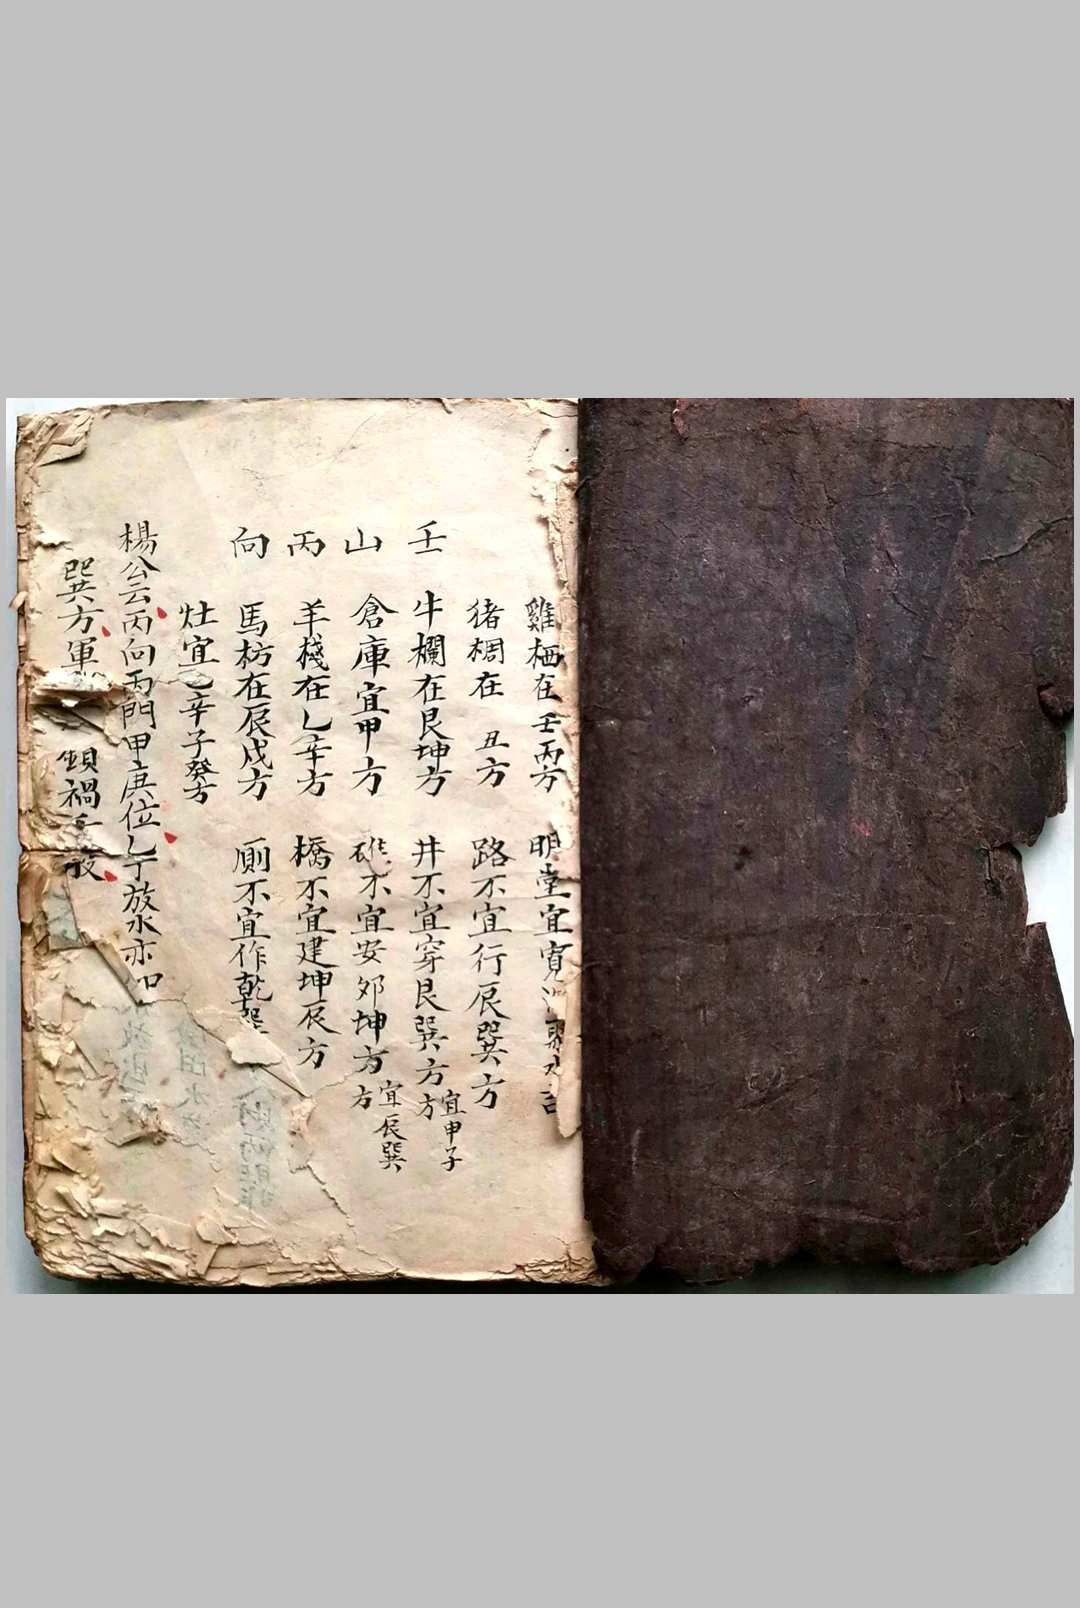 雞栖在壬丙方 明堂宜寬 聚水吉
猪椆在 丑方 路不宜行辰巽方
壬 牛欄在艮坤方 井不宜穿艮巽方 宜甲子方
山 倉庫宜甲方 碓不宜安卯坤方 宜辰巽方
丙 羊棧在乙辛方 橋不宜建坤辰方
向 馬枋在辰戍方 厠不宜作乾巽
灶宜乙辛子癸方
楊公云丙向丙門甲庚位乙 放水亦如
巽方軍 禍